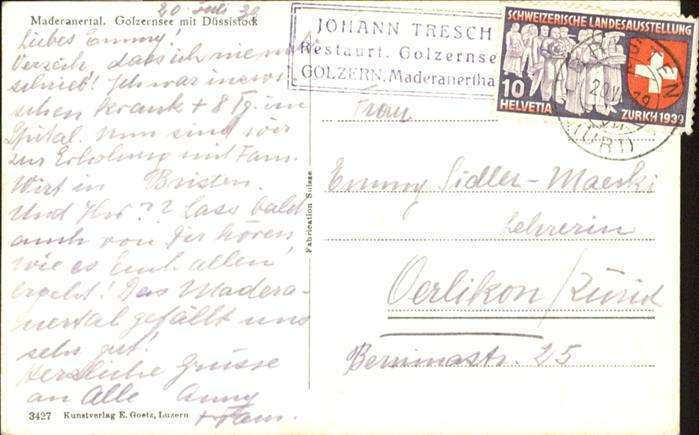 Maderanertal. Golzernsee mit Düssistock
20 Juli 39
Liebes Emmy!
Verzeih, dass ich nie
schrieb! Ich war inzwi
schen krank + 8 Tg. im
Spital. Nun sind wir
zur Erholung mit Fam.
Wirt in Bristen.
Und Ihr?? Lass bald
auch von Dir hören
wie es Euch allen
ergeht! Das Madera-
nertal gefällt uns
sehr gut!
Herzliche Grüsse
an Alle Anny
+ Fam.
3427 Kunstverlag E. Goetz, Luzern
Fabrication Suisse
JOHANN TRESCH
Restaurt. Golzernse
GOLZERN, Maderanertha
SCHWEIZERISCHE LANDESAUSSTELLUNG
10 HELVETIA ZÜRICH 1939
(URI)
Frau
Emmy Sidler-Maeski
Lehrerin
Oerlikon/Zürich
Berninastr. 25